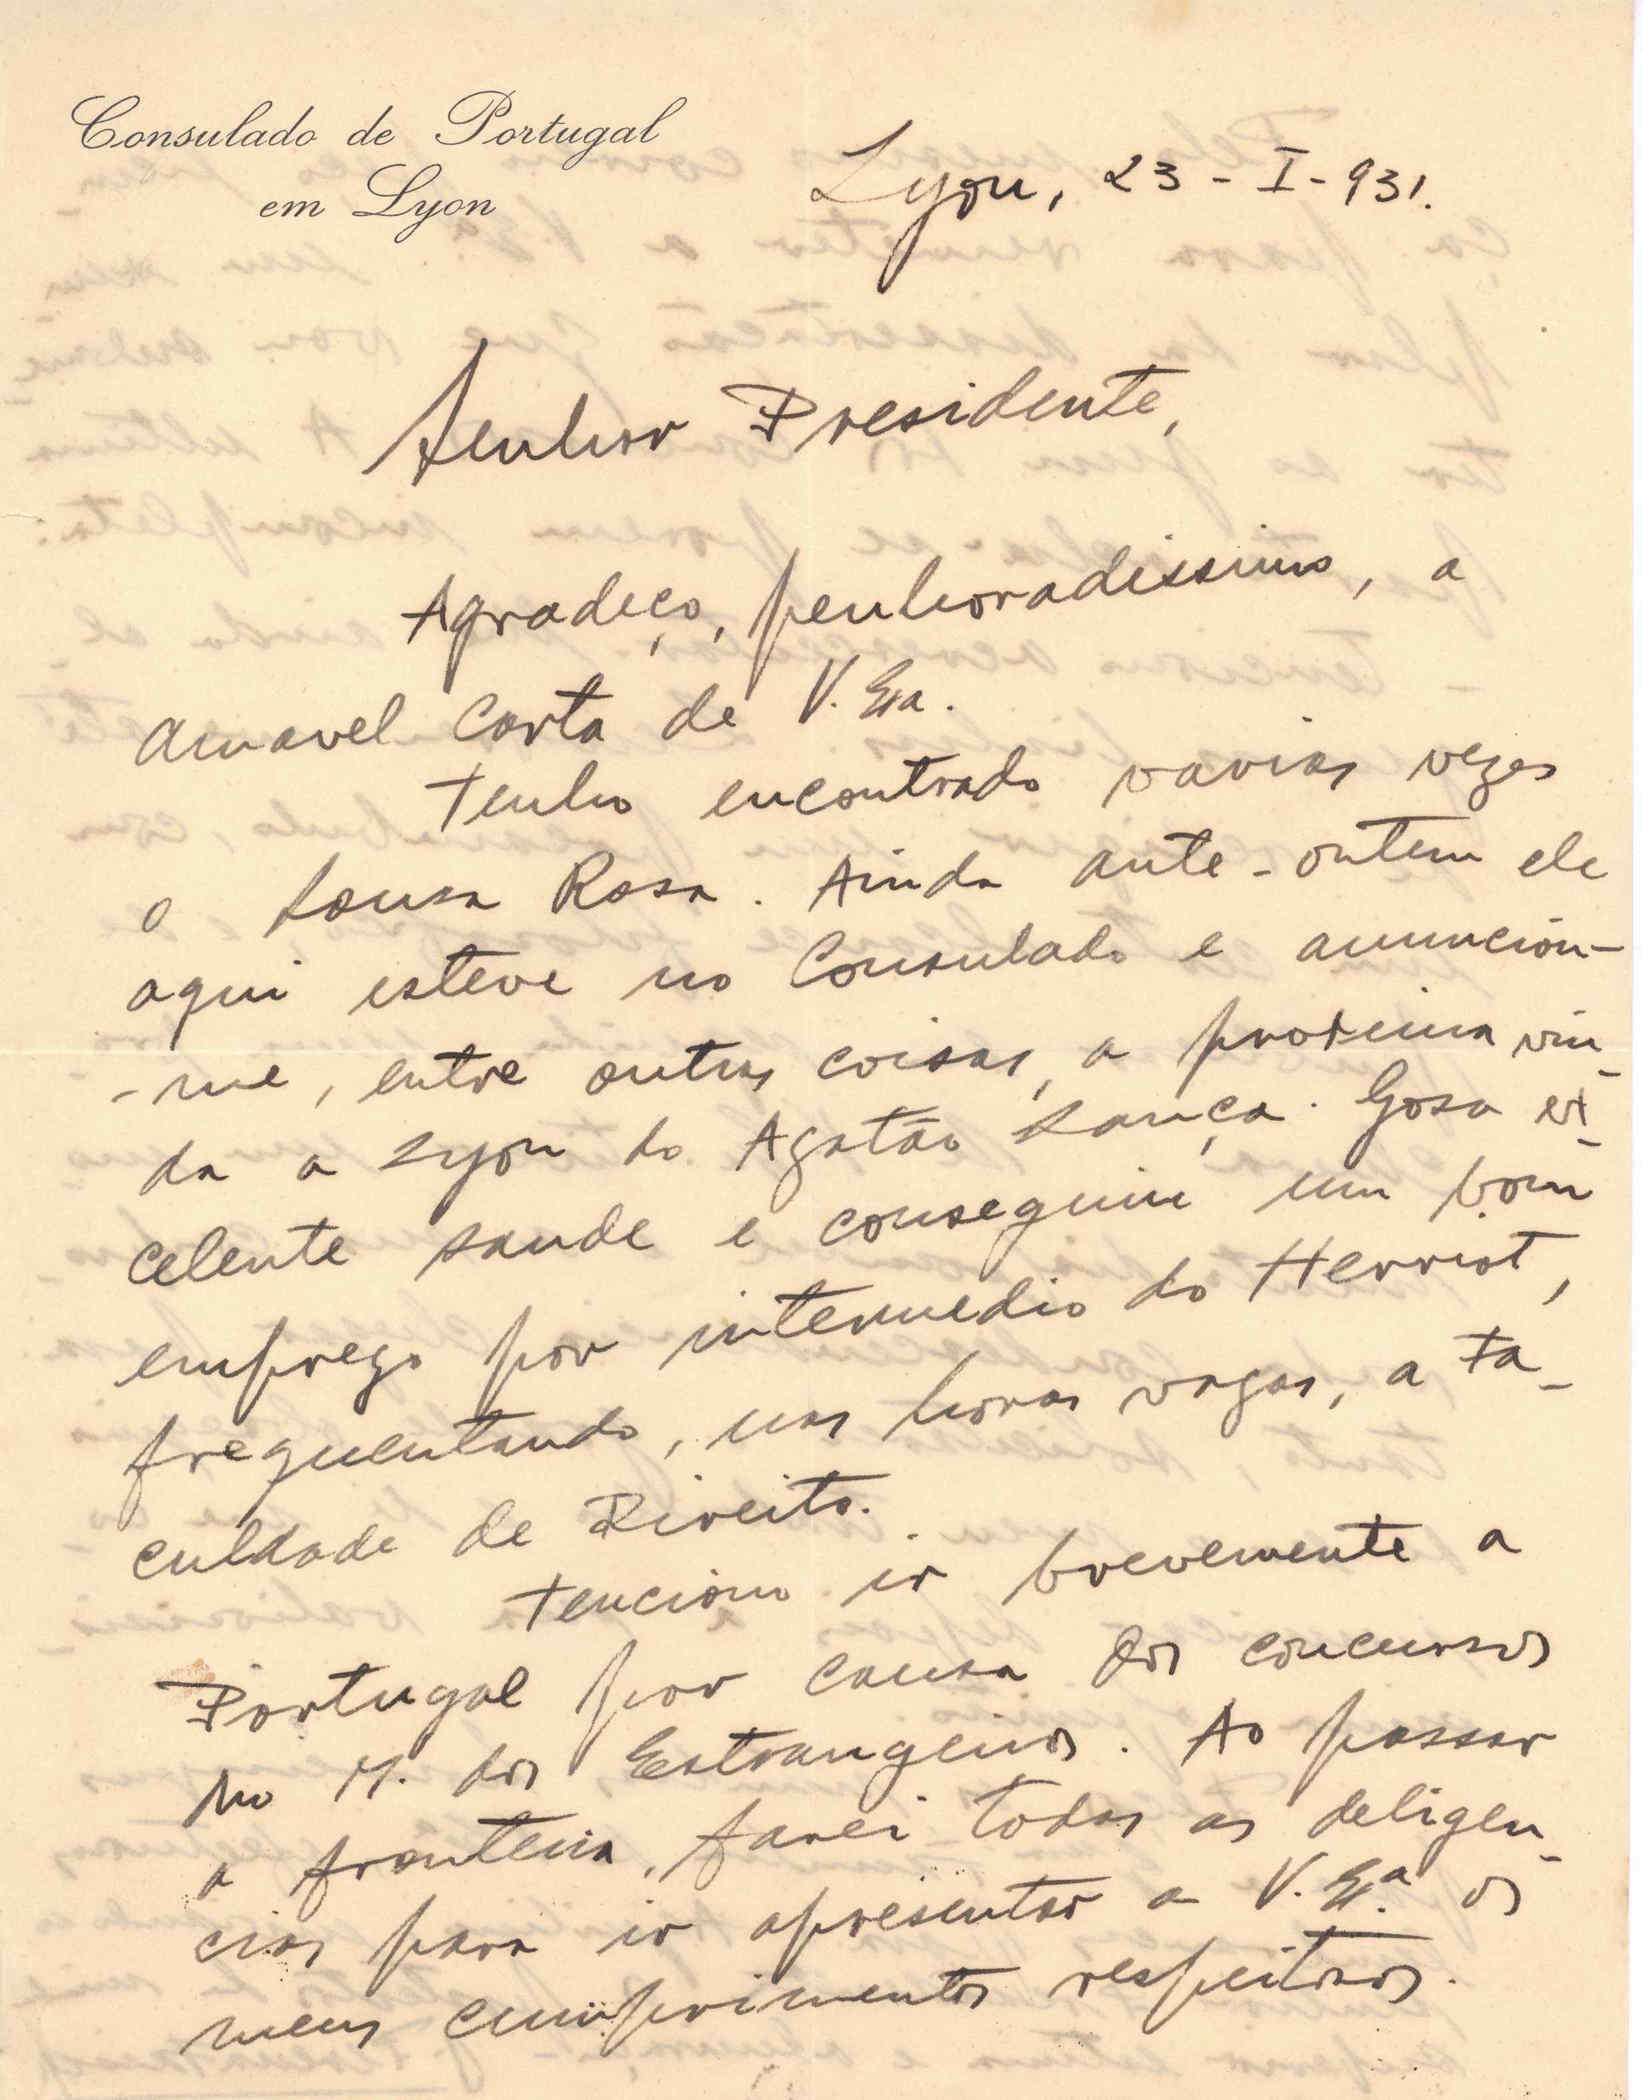 Consulado de Portugal
em Lyon
Lyon, 23 - I - 931.
Senhor Presidente,
Agradeço, penhoradissimo, a
amavel carta de V. Exa.
Tenho encontrado varias vezes
o Sousa Rosa. Ainda ante-ontem ele
aqui esteve no Consulado e anunciou-
-me, entre outras coisas, a proxima vin-
da a Lyon do Agatão Lança. Gosa ex-
celente saude e conseguiu um bom
emprego por intermedio do Herriot,
frequentando, nas horas vagas, a Fa-
culdade de Direito.
Tenciono ir brevemente a
Portugal por causa dos concursos
no M. dos Estrangeiros. Ao passar
a fronteira, farei todas as deligen-
cias para ir apresentar a V. Exª. os
meus cumprimentos respeitosos.